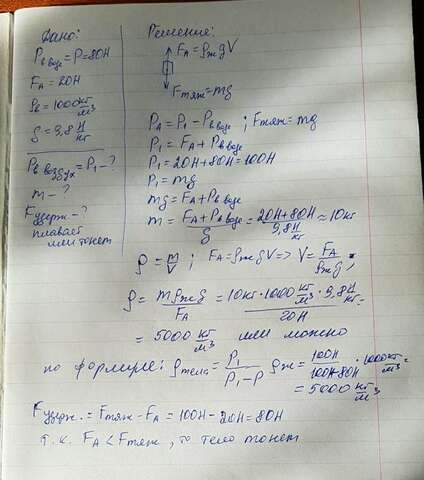 Дано:
Pв воде = P = 80Н
FA = 20Н
ρв = 1000 кг/м³
g = 9,8 Н/кг
Pв воздух = P₁ - ?
m - ?
Fудерж - ?
плавает
или тонет
Решение:
FA = ρж gV
Fтяж = mg
FA = P₁ - Pв воде ; Fтяж = mg
P₁ = FA + Pв воде
P₁ = 20Н + 80Н = 100Н
P₁ = mg
mg = FA + Pв воде
m = (FA + Pв воде)/g = (20Н + 80Н)/(9,8 Н/кг) ≈ 10 кг
ρ = m/V ; FA = ρж gV => V = FA/(ρж g) ;
ρ = (mρж g)/FA = (10кг · 1000 кг/м³ · 9,8 Н/кг)/20Н =
= 5000 кг/м³ или можно
по формуле: ρтела = P₁/(P₁ - P) ρж = 100Н/(100Н - 80Н) · 1000 кг/м³ =
= 5000 кг/м³
Fудерж. = Fтяж - FA = 100Н - 20Н = 80Н
т.к. FA < Fтяж, то тело тонет